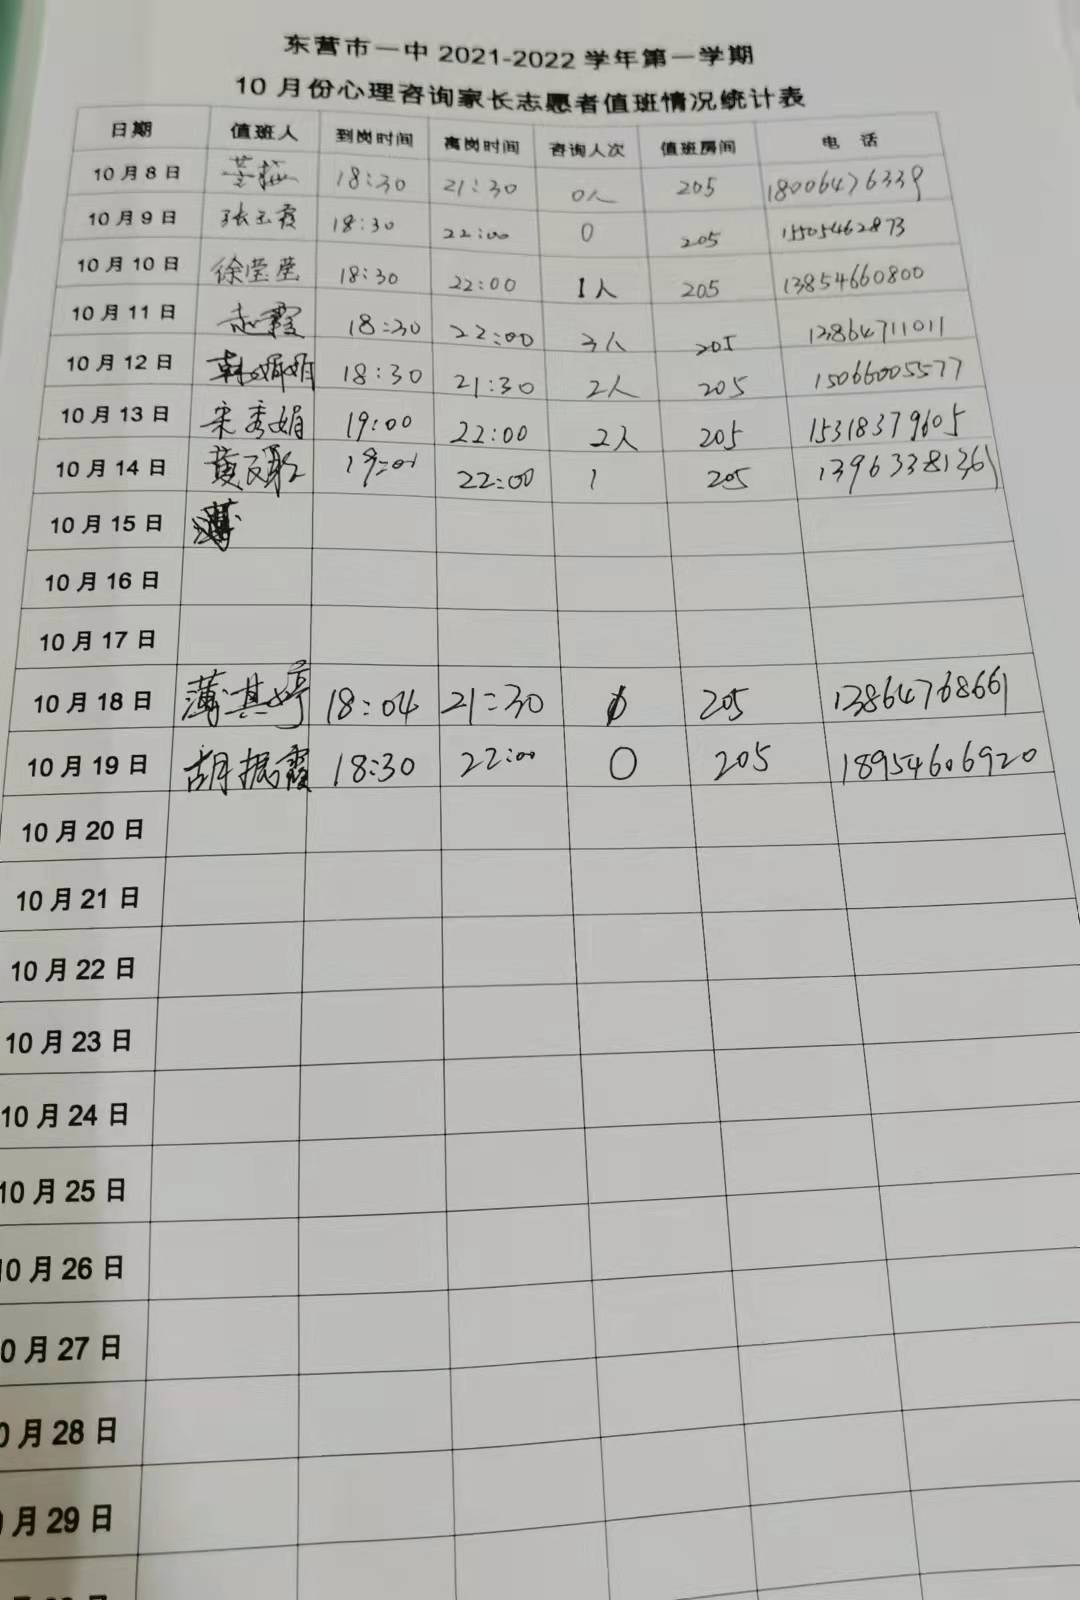 东营市一中 2021-2022 学年第一学期
10 月份心理咨询家长志愿者值班情况统计表
日期 值班人 到岗时间 离岗时间 咨询人次 值班房间 电 话
10月8日 18:30 21:30 0人 205 18006476339
10月9日 张玉霞 18:30 22:00 0 205 1505462873
10月10日 徐莹莹 18:30 22:00 1人 205 13854660800
10月11日 赵霞 18:30 22:00 3人 205 13864711011
10月12日 韩娟娟 18:30 21:30 2人 205 15066005577
10月13日 宋秀娟 19:00 22:00 2人 205 15318379605
10月14日 黄 19:01 22:00 1 205 13963381361
10月15日
10月16日
10月17日
10月18日 薄其婷 18:04 21:30 0 205 13864768661
10月19日 胡振霞 18:30 22:00 0 205 18954606920
10月20日
10月21日
10月22日
10月23日
10月24日
10月25日
10月26日
0月27日
0月28日
月29日